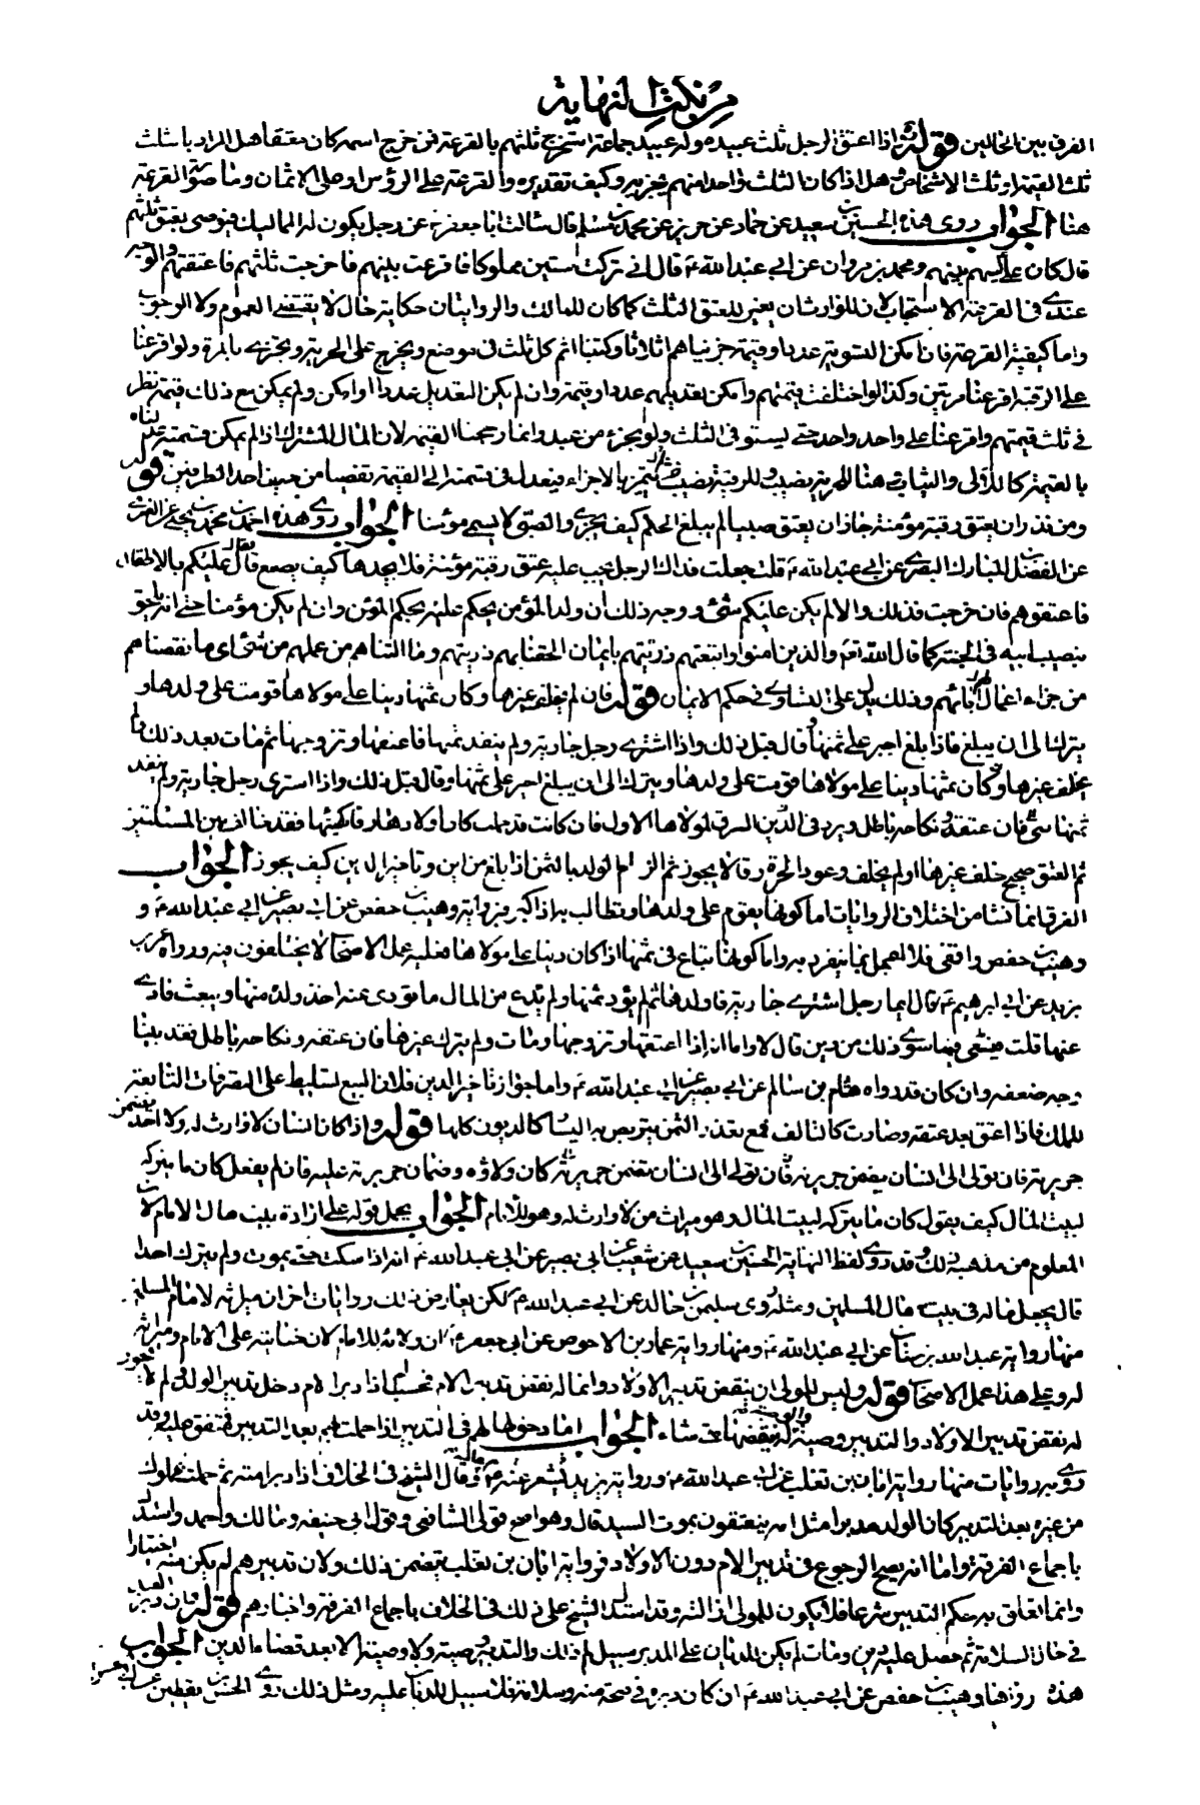 من نكت النهاية
الفرق بين الحالين قوله اذا اعتق الرجل ثلث عبيده وله عبيد جماعة استخرج ثلثهم بالقرعة فمن خرج اسمه كان معتقا هل المراد با ثلث
ثلث القيمة او ثلث الاشخاص وهل اذا كان الثلث واحدا منهم يجزيه وكيف تقديره والقرعة على الرؤس او على الاثمان وما صورة القرعة
هنا الجواب روى هذه الحسين بن سعيد عن حماد عن حريز عن محمد بن مسلم قال سالت ابا جعفر ع عن رجل يكون له المماليك فيوصى بعتق ثلثهم
قال كان علي ع يسهم بينهم ومحمد بن مروان عن ابي عبد الله ع قال ان ابي ترك ستين مملوكا فاقرعت بينهم فاخرجت ثلثهم فاعتقتهم والوجه
عندي في القرعة الاستحباب لان للوارث ان يعين للعتق الثلث كما كان للمالك والروايتان حكاية حال لا يقتضي العموم ولا الوجوب
واما كيفية القرعة فان امكن التسوية عددا وقيمة جزيناهم اثلاثا وكتبنا اثم كل ثلث في موضع ويخرج على الحرية ويجزي بالمرة ولو اقرعنا
على الرقية اقرعنا مرتين وكذا لو اختلفت قيمتهم وامكن تعديلهم عددا وقيمة وان لم يكن التعديل عددا او امكن ولم يمكن مع ذلك قيمة نظر
في ثلث قيمتهم واقرعنا على واحد واحد حتى يستوفى الثلث ولو بجزء من عبد وانما رجحنا القيمة لان المال المشترك اذا لم يمكن قسمته عدل بناه
بالقيمة كاللالى والثياب وهنا للحرية نصيب وللرقية نصيب متميز بالاجزاء فيعدل في قسمته الى القيمة تفصيا من حيف احد الطرفين قوله
ومن نذر ان يعتق رقبة مؤمنة جاز ان يعتق صبيا لم يبلغ الحلم كيف يجزي والصبي لا يسمى مؤمنا الجواب روى هذه احمد بن محمد بن يحيى عن الغزي
عن الفضل بن المبارك البصري عن ابي عبد الله ع قلت جعلت فداك الرجل يجب عليه عتق رقبة مؤمنة فلا يجدها كيف يصنع قال فقال عليكم بالاطفال
فاعتقوهم فان خرجت فذلك والا لم يكن عليكم شئ ووجه ذلك ان ولد المؤمن يحكم عليه بحكم المؤمن وان لم يكن مؤمنا حتى انه يلحق
بنصيب ابيه في الجنة كما قال الله تعالى والذين امنوا واتبعتهم ذريتهم بايمان الحقنا بهم ذريتهم وما التناهم من عملهم من شئ اى ما نقصناهم
من جزاء اعمال ابائهم وذلك يدل على التساوى في حكم الايمان قوله فان لم يخلف غيرها وكان ثمنها دينا على مولاها قومت على ولدها و
يترك الى ان يبلغ فاذا بلغ اجبر على ثمنها وقال قبل ذلك واذا اشترى رجل جارية ولم ينقد ثمنها فاعتقها وتزوجها ثم مات بعد ذلك ولم
يخلف غيرها وكان ثمنها دينا على مولاها قومت على ولدها ويترك الى ان يبلغ اجبر على ثمنها وقال قبل ذلك واذا اشترى رجل جارية ولم ينقد
ثمنها شئ فان عتقه ونكاحه باطل ويرد في الدين السرق لمولاها الاول فان كانت قد حملت كان اولادها رقا كهيئتها فقد خالف بين المسئلتين
ثم العتق صحيح خلف غيرها او لم يخلف وعود الحرة رقا لا يجوز ثم الزام الولد بالثمن اذا بلغ من اين وتاخير الدين كيف يجوز الجواب
الفرق انما نشا من اختلاف الروايات اما كونها يقوم على ولدها ويطالب به اذا كبر فرواية وهيب بن حفص عن ابي بصير عن ابي عبد الله ع و
وهيب بن حفص واقفى فلا اعمل بما ينفرد به واما كونها تباع في ثمنها اذا كان دينا على مولاها فعليه عمل الاصحاب لا يختلفون فيه ورواه عمر بن
يزيد عن ابي ابرهيم ع قال ايما رجل اشترى جارية فاولدها ثم لم يؤد ثمنها ولم يدع من المال ما يؤدى عنه اخذ ولده منها وبيعت فادى
عنها قلت فيبعن فيما سوى ذلك من دين قال لا واما انه اذا اعتقها وتزوجها ومات ولم يترك غيرها فان عتقه ونكاحه باطل فقد بينا
وجه ضعفه وان كان قد رواه هشام بن سالم عن ابي بصير عن ابي عبد الله ع واما جواز تاخير الدين فلان البيع تسليط على التصرفات التابعة
للملك فاذا اعتق بعد عتقه وصارت كالتالف فمع تعذر الثمن يتربص به اليسار كالديون كلها قوله واذا كان انسان لا وارث له ولا احد يضمن
جريرته فان تولى الى انسان يضمن جريرته فان تولى الى انسان تضمن جريرته كان ولاؤه وضمان جريرته عليه فان لم يفعل كان ما يتركه
لبيت المال كيف يقول كان ما يتركه لبيت المال وهو ميراث من لا وارث له وهو للامام الجواب يحمل قوله على ارادة بيت مال الامام لان
المعلوم من مذهبه ذلك وقد روى لفظ النهاية الحسين بن سعيد عن شعيب عن ابي بصير عن ابي عبد الله ع انه اذا سكت حتى يموت ولم يترك احدا
قال يجعل ماله في بيت مال المسلمين ومثله روى سليمن بن خالد عن ابي عبد الله ع لكن يعارض ذلك روايات اخر ان ميراثه لامام المسلمين
منها رواية عبد الله بن سنان عن ابي عبد الله ع ومنها رواية عمار بن الاحوص عن ابي جعفر ع ان ولائه للامام لان جنايته على الامام وميراثه
له وعلى هذا عمل الاصحاب قوله وليس للمولى ان ينقض تدبير الاولاد وانما له نقض تدبير الام فحسب اذا دبر الام دخل تدبير الولد فلم لا يجوز
له نقض تدبير الاولاد والتدبير وصية له نقضها متى شاء الجواب اما دخولهم في التدبير اذا حملت بهم بعد التدبير فمتفق عليه وقد
روى به روايات منها رواية ابان بن تغلب عن ابي عبد الله ع ورواية يزيد بن شعر عنه ع وقال الشيخ في الخلاف اذا دبر امته ثم حملت بمملوك
من غيره بعد التدبير كان الولد مدبرا مثل امه ينعتقون بموت السيد قال وهو اصح قولى الشافعي وقول ابي حنيفه ومالك واحمد واستدل
باجماع الفرقة واما انه يصح الرجوع في تدبير الام دون الاولاد فرواية ابان بن تغلب يتضمن ذلك ولان تدبيرهم لم يكن منه اختيارا
وانما تعلق به حكم التدبير شرعا فلا يكون للمولى ازالته وقد استدل الشيخ على ذلك في الخلاف باجماع الفرقة واخبارهم قوله وان دبر العبد
في حال السلامة ثم حصل عليه دين ومات لم يكن للديان على المدبر سبيل لم ذلك والتدبير وصية ولا وصية الا بعد قضاء الدين الجواب
هذه رواها وهيب بن حفص عن ابي عبد الله ع ان كان دبره في صحة منه وسلامة فلا سبيل للديان عليه ومثل ذلك روى الحسن بن يقطين عن ابي الحسن ع